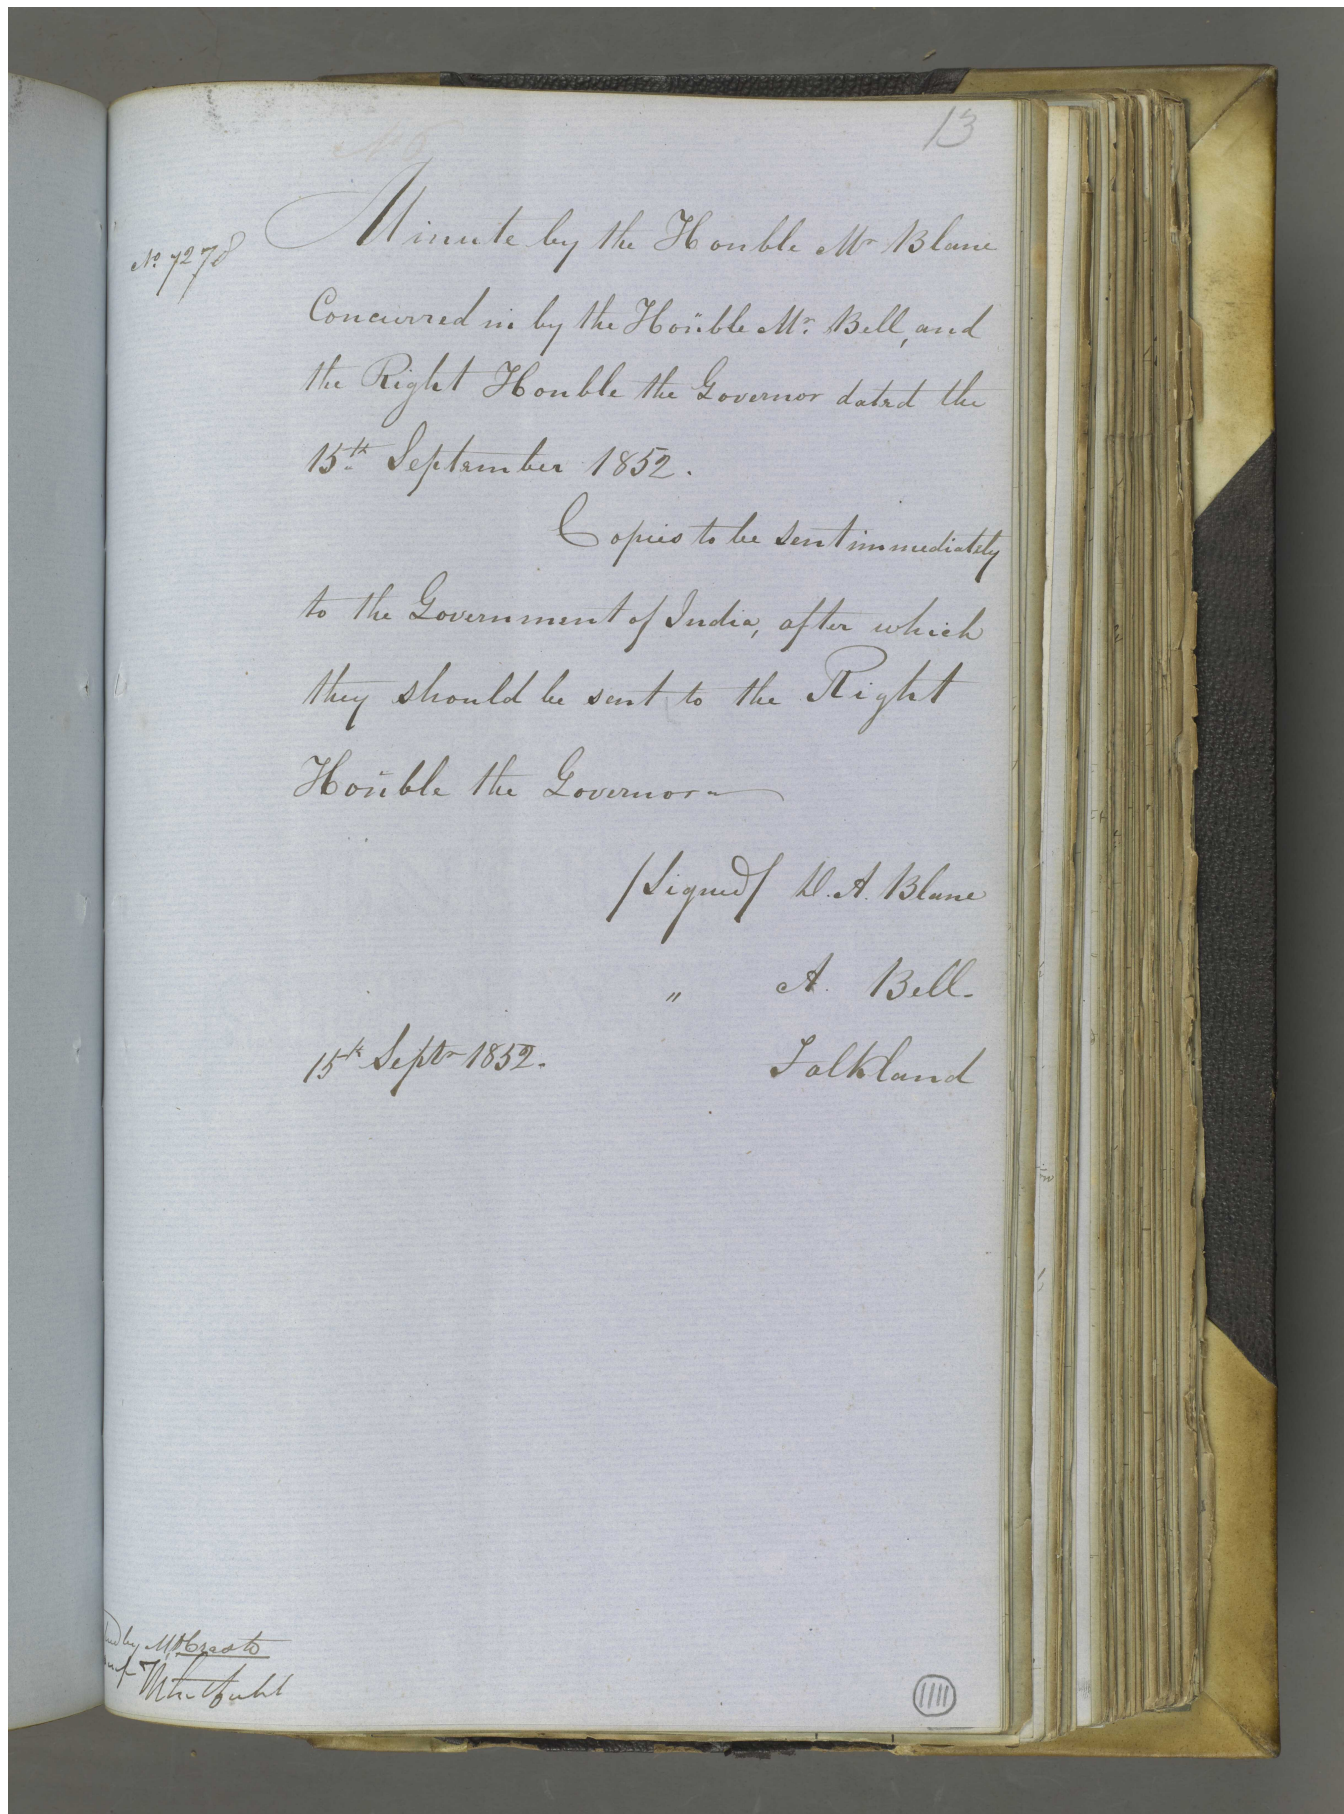 13
No. 7278
Minute by the Honble Mr Blane
Concurred in by the Honble Mr. Bell, and
the Right Honble the Governor dated the
15th September 1852.
Copies to be sent immediately
to the Government of India, after which
they should be sent to the Right
Honble the Governor
/Signed/ D. A. Blane
" A. Bell.
15th Septr 1852. Falkland
by
1111